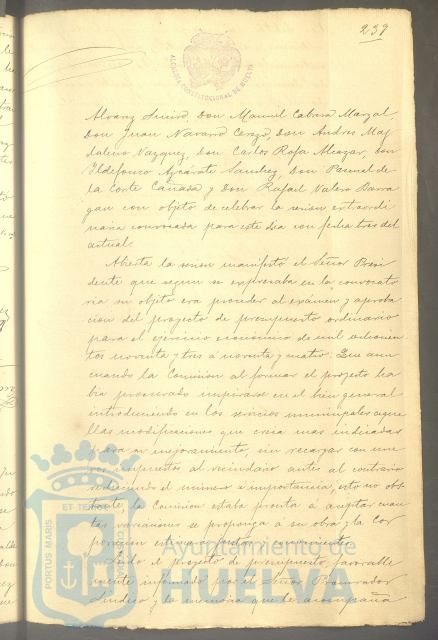 239
ALCALDIA CONSTITUCIONAL DE HUELVA
Alvarez Don Manuel Cabrera Marzal,
Don Juan Navarro Don Andres Mag
daleno Vazquez, Don Carlos Rofa Alcazar Don
Ildefonso Azcárate Sanchez, Don Pascual de
la Corte Cañada y Don Rafael Valero Barra
gan con objeto de celebrar la sesion extraordi
naria convocada para este dia con fecha tres del
actual.
Abierta la sesion manifestó el Señor Presi
dente que segun se expresaba en la convocato
ria su objeto era proceder al exámen y aproba
cion del proyecto de presupuesto ordinario
para el ejercicio economico de mil ochocien
tos noventa y tres á noventa y cuatro. Que aun
cuando la Comision al formar el proyecto ha
bia procurado inspirarse en el bien general
introduciendo en los servicios municipales aque
llas modificaciones que creia mas indicadas
para su mejoramiento, sin recargar con nue
vos impuestos al vecindario antes al contrario
reduciendo el número é importancia, esto no obs
tante, la Comision estaba pronta á aceptar cuan
tas variaciones se proponga á su obra y la Cor
poracion estime justas y convenientes.
Leido el proyecto de presupuesto, favorable
mente informado por el Señor Procurador
Sindico y la memoria que le acompaña
PORTUS MARIS ET TERRAE CUSTODIA
Ayuntamiento de
HUELVA